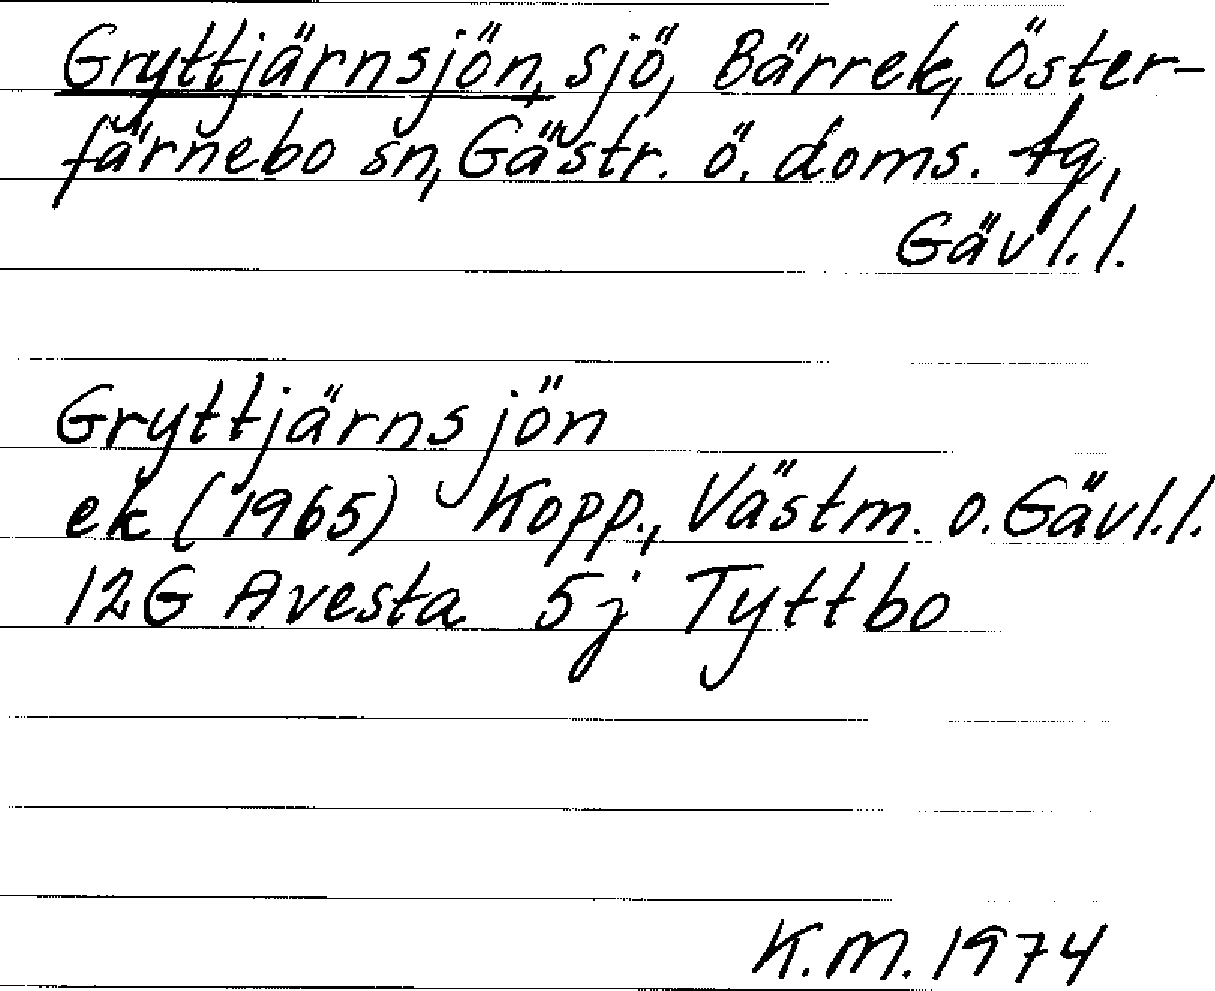 Gryttjärnsjön, sjö, Bärrek, Öster-
färnebo sn, Gästr. ö. doms. tg,
Gävl.l.
Gryttjärnsjön
ek (1965) Kopp., Västm. o. Gävl.l.
12G Avesta 5j Tyttbo
K.M. 1974